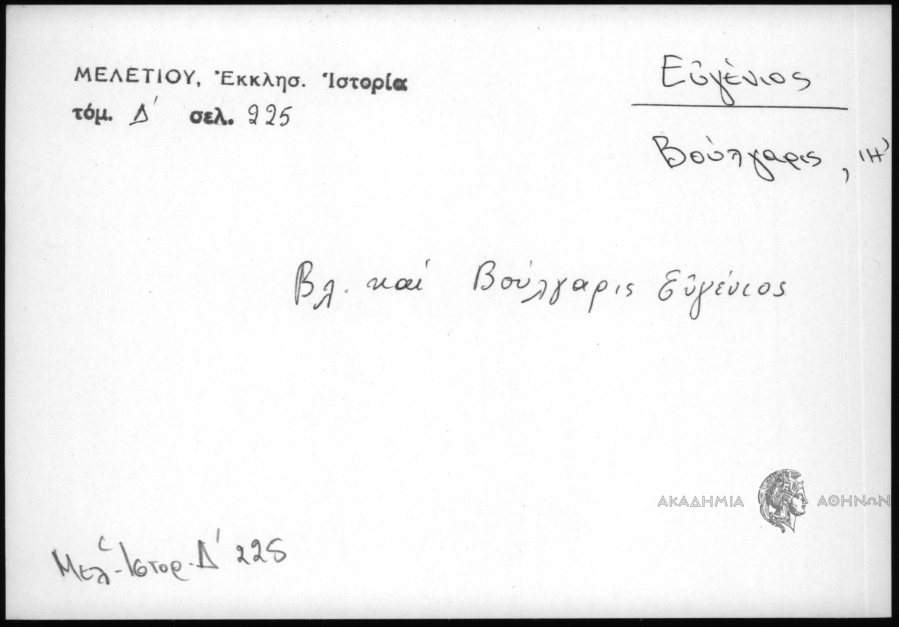 ΜΕΛΕΤΙΟΥ, Ἐκκλησ. Ἱστορία
τόμ. Δ' σελ. 225
Εὐγένιος
Βούλγαρις, ΙΗ'
Βλ. καὶ Βούλγαρις Εὐγένιος
ΑΚΑΔΗΜΙΑ ΑΘΗΝΩΝ
Μελ. Ἱστορ. Δ' 225